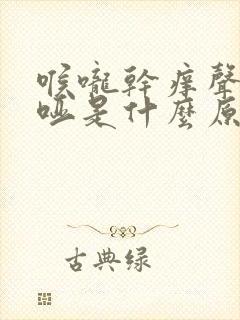 喉嚨幹痒聲
啞是什麼原
古典绿